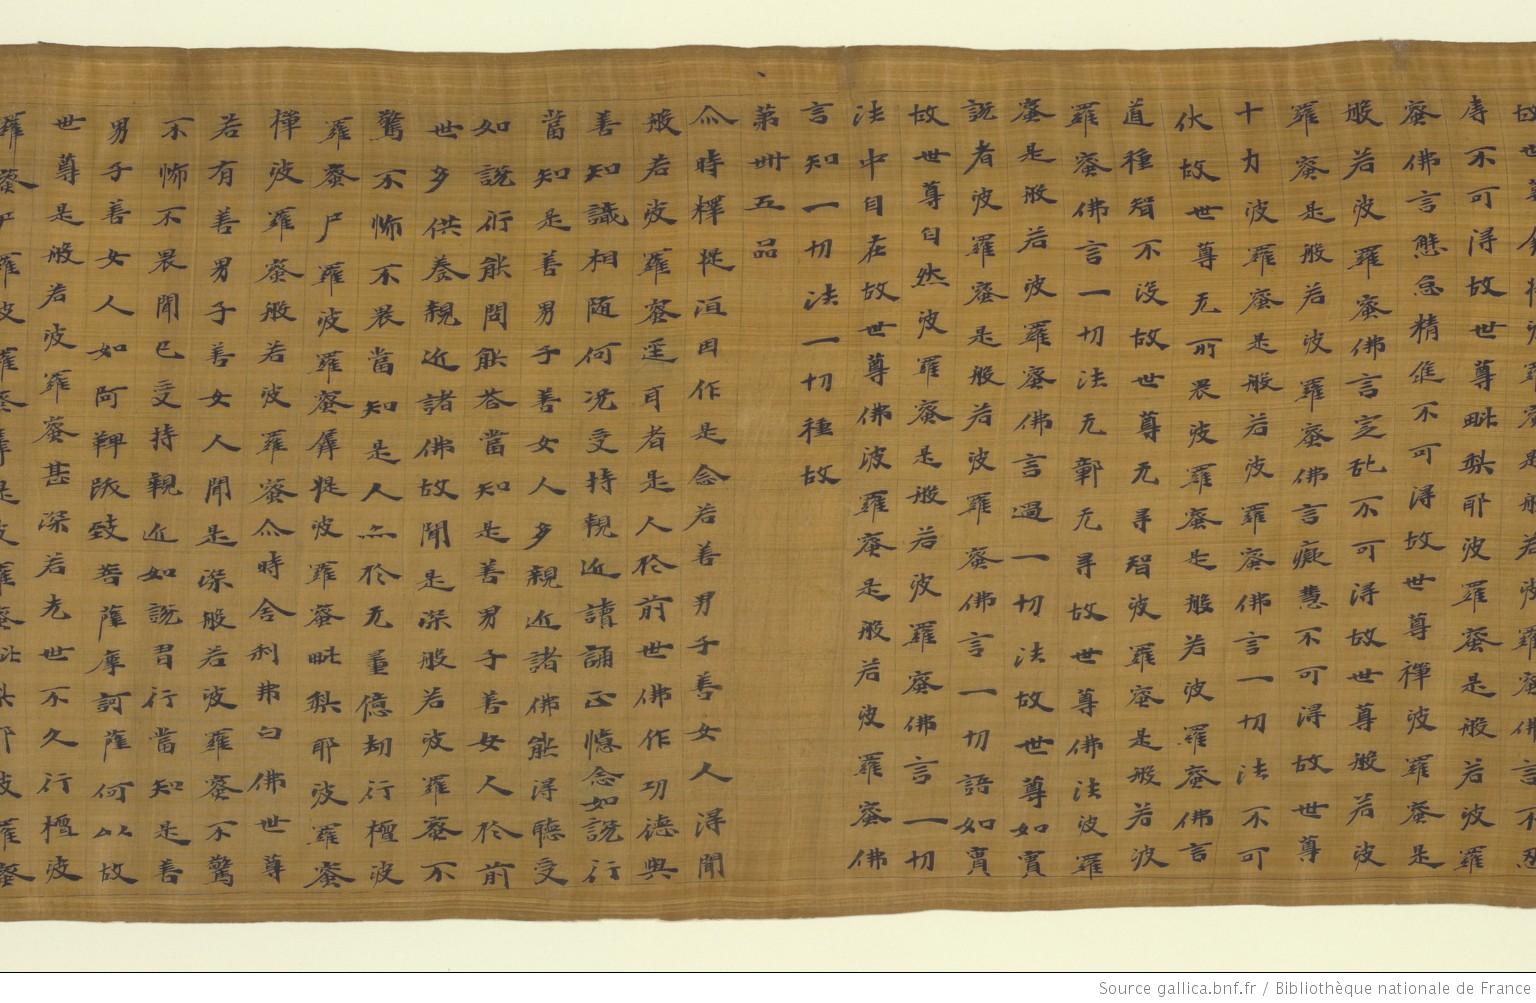 故世尊羼提波羅蜜是般若波羅蜜佛言不忍
辱不可得故世尊毗梨耶波羅蜜是般若波羅
蜜佛言懈怠精進不可得故世尊禪波羅蜜是
般若波羅蜜佛言定乱不可得故世尊般若波
羅蜜是般若波羅蜜佛言癡慧不可得故世尊
十力波羅蜜是般若波羅蜜佛言一切法不可
伏故世尊无所畏波羅蜜是般若波羅蜜佛言
道種智不没故世尊无㝵智波羅蜜是般若波
羅蜜佛言一切法无鄣无㝵故世尊佛法波羅
蜜是般若波羅蜜佛言過一切法故世尊如實
說者波羅蜜是般若波羅蜜佛言一切語如實
故世尊自然波羅蜜是般若波羅蜜佛言一切
法中自在故世尊佛波羅蜜是般若波羅蜜佛
言知一切法一切種故
第卌五品
尒時釋提洹因作是念若善男子善女人得聞
般若波羅蜜逕耳者是人於前世佛作功德與
善知識相隨何況受持親近讀誦正憶念如說行
當知是善男子善女人多親近諸佛能得聽受
如說行能問能答當知是善男子善女人於前
世多供養親近諸佛故聞是深般若波羅蜜不
驚不怖不畏當知是人亦於无量億劫行檀波
羅蜜尸羅波羅蜜羼提波羅蜜毗梨耶波羅蜜
禪波羅蜜般若波羅蜜尒時舍利弗白佛世尊
若有善男子善女人聞是深般若波羅蜜不驚
不怖不畏聞已受持親近如說習行當知是善
男子善女人如阿鞞跋致菩薩摩訶薩何以故
世尊是般若波羅蜜甚深若先世不久行檀波
羅蜜尸羅波羅蜜羼提波羅蜜毗梨耶波羅蜜
Source gallica.bnf.fr / Bibliothèque nationale de France